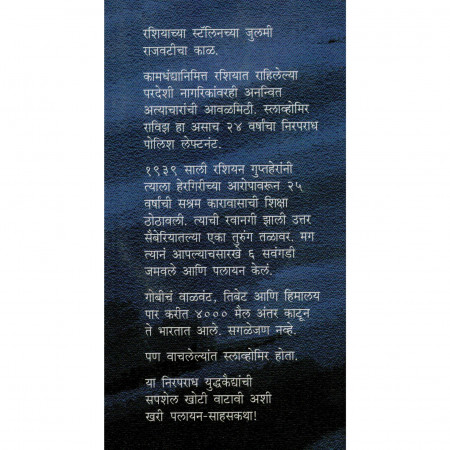 रशियाच्या स्टॅलिनच्या जुलमी
राजवटीचा काळ.
कामधंद्यानिमित्त रशियात राहिलेल्या
परदेशी नागरिकांवरही अनन्वित
अत्याचारांची आवळमिठी. स्लाव्होमिर
राविझ हा असाच २४ वर्षांचा निरपराध
पोलिश लेफ्टनंट.
१९३९ साली रशियन गुप्तहेरांनी
त्याला हेरगिरीच्या आरोपावरून २५
वर्षांची सश्रम कारावासाची शिक्षा
ठोठावली. त्याची रवानगी झाली उत्तर
सैबेरियातल्या एका तुरुंग तळावर. मग
त्यानं आपल्याचसारखे ६ सवंगडी
जमवले आणि पलायन केलं.
गोबीचं वाळवंट, तिबेट आणि हिमालय
पार करीत ४००० मैल अंतर काटून
ते भारतात आले. सगळेजण नव्हे.
पण वाचलेल्यांत स्लाव्होमिर होता.
या निरपराध युद्धकैद्यांची
सपशेल खोटी वाटावी अशी
खरी पलायन-साहसकथा!